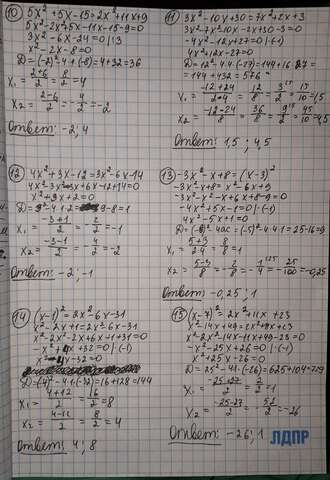 10) 5x² + 5x - 15 = 2x² + 11x + 9
5x² - 2x² + 5x - 11x - 15 - 9 = 0
3x² - 6x - 24 = 0 | :3
x² - 2x - 8 = 0
D = (-2)² - 4 · 1 · (-8) = 4 + 32 = 36
x₁ = (2+6)/2 = 8/2 = 4
x₂ = (2-6)/2 = -4/2 = -2
Ответ: -2; 4
11) 3x² - 10x + 30 = 7x² + 2x + 3
3x² - 7x² - 10x - 2x + 30 - 3 = 0
-4x² - 12x + 27 = 0 | (-1)
4x² + 12x - 27 = 0
D = 12² - 4 · 4 · (-27) = 144 + 16 · 27 =
= 144 + 432 = 576
x₁ = (-12+24)/(2·4) = 12/8 = 3/2 = 15/10 = 1,5
x₂ = (-12-24)/8 = 36/8 = 9/2 = 45/10 = 4,5
Ответ: 1,5 ; 4,5
12) 4x² + 3x - 12 = 3x² - 6x - 14
4x² - 3x² + 3x + 6x - 12 + 14 = 0
x² + 3x + 2 = 0
D = 3² - 4 · 1 · 2 = 9 - 8 = 1
x₁ = (-3+1)/2 = -2/2 = -1
x₂ = (-3-1)/2 = -4/2 = -2
Ответ: -2; -1
13) -3x² - x + 8 = (x - 3)²
-3x² - x + 8 = x² - 6x + 9
-3x² - x² - x + 6x + 8 - 9 = 0
-4x² + 5x - 1 = 0 | (-1)
4x² - 5x + 1 = 0
D = (-5)² - 4ac = (-5)² - 4 · 4 · 1 = 25 - 16 = 9
x₁ = (5+3)/(2·4) = 8/8 = 1
x₂ = (5-3)/8 = -2/8 = -1/4 = 25/100 = -0,25
Ответ: -0,25; 1
14) (x - 1)² = 2x² - 6x - 31
x² - 2x + 1 = 2x² - 6x - 31
x² - 2x² - 2x + 6x + 1 + 31 = 0
x² + 4x + 32 = 0 | (-1)
x² - 4x - 32 = 0
D = (-4)² - 4 · 1 · (-32) = 16 + 128 = 144
x₁ = (4+12)/2 = 16/2 = 8
x₂ = (4-12)/2 = 8/2 = 4
Ответ: 4; 8
15) (x - 7)² = 2x² + 11x + 23
x² - 14x + 49 = 2x² + 11x + 23
x² - 2x² - 14x - 11x + 49 - 23 = 0
-x² - 25x + 26 = 0 | (-1)
x² + 25x - 26 = 0
D = 25² - 4 · 1 · (-26) = 625 + 104 = 729
x₁ = (-25+27)/2 = 2/2 = 1
x₂ = (-25-27)/2 = -52/2 = -26
Ответ: -26; 1
ЛДПР